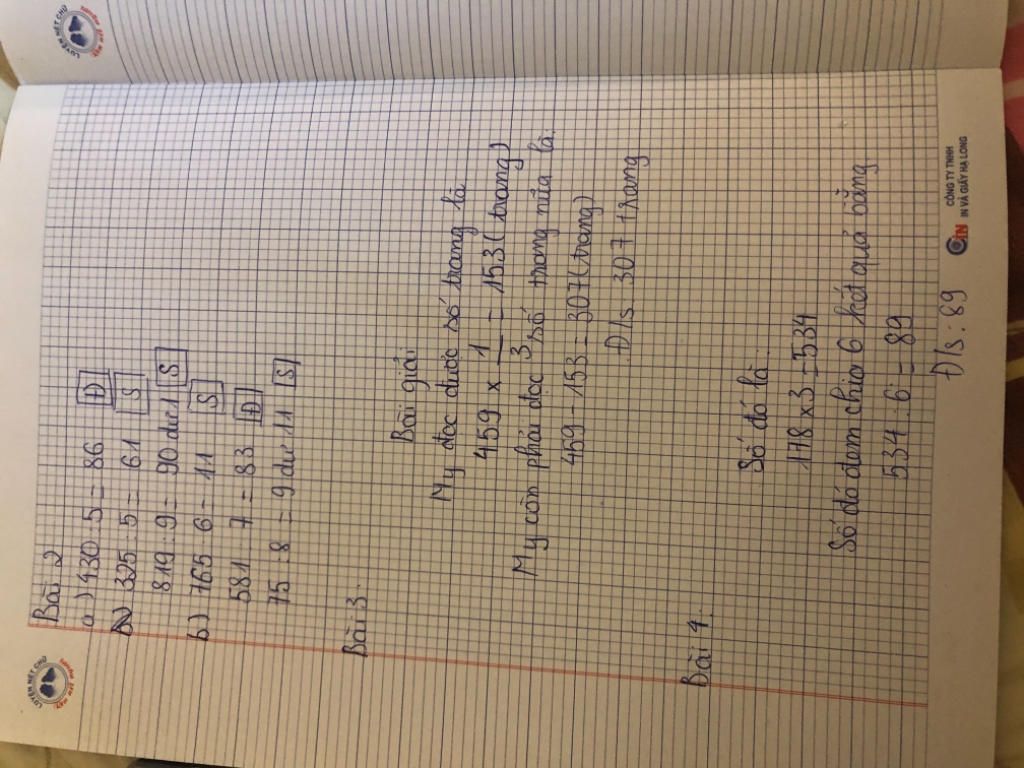 LUYỆN NÉT CHỮ
LUYỆN NÉT CHỮ
Bài 2
a) 430 : 5 = 86 Đ
325 : 5 = 61 S
819 : 9 = 90 dư 1 S
b) 765 6 = 11 S
581 7 = 83 Đ
75 : 8 = 9 dư 11 S
Bài 3.
Bài giải
My đọc được số trang là
459 x 1/3 = 153 (trang)
My còn phải đọc số trang nữa là.
459 - 153 = 307 (trang)
Đ/s 307 trang
Bài 4.
Số đó là:
178 x 3 = 534
Số đó đem chia 6 kết quả bằng
534 : 6 = 89
Đ/s : 89
CÔNG TY TNHH
IN VÀ GIẤY HẠ LONG